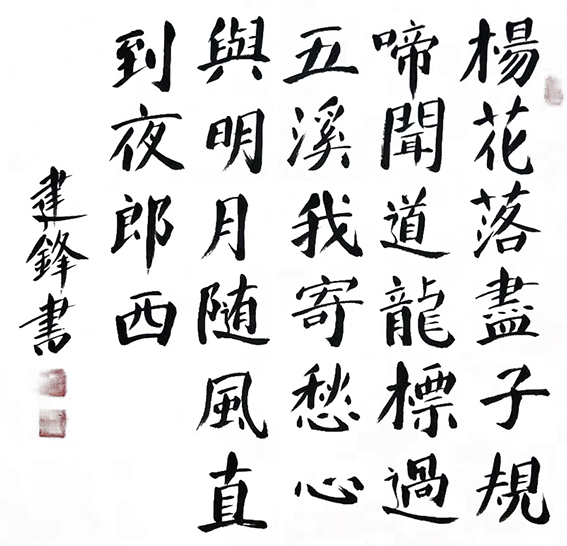 楊花落盡子規
啼聞道龍標過
五溪我寄愁心
與明月随風直
到夜郎西
建鋒書